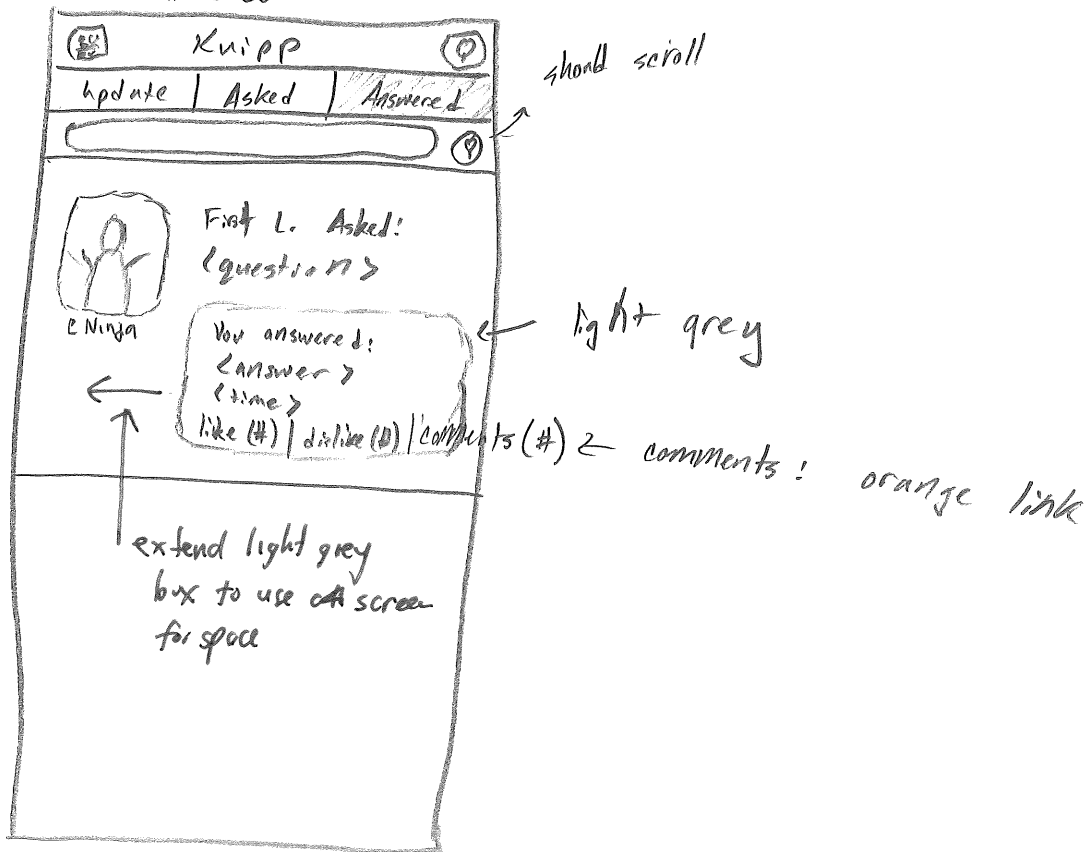 Knipp
should scroll
Update | Asked | Answered
First L. Asked:
<question>
e Ninja
You answered:
<answer>
<time>
like (#) | dislike (#) | comments (#)
light grey
comments: orange link
extend light grey
box to use screen
for space